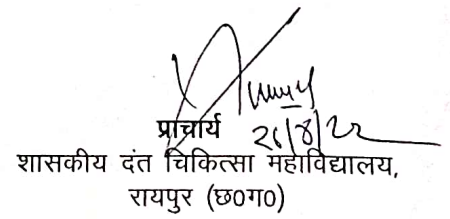 प्राचार्य
शासकीय दंत चिकित्सा महाविद्यालय,
रायपुर (छ०ग०)